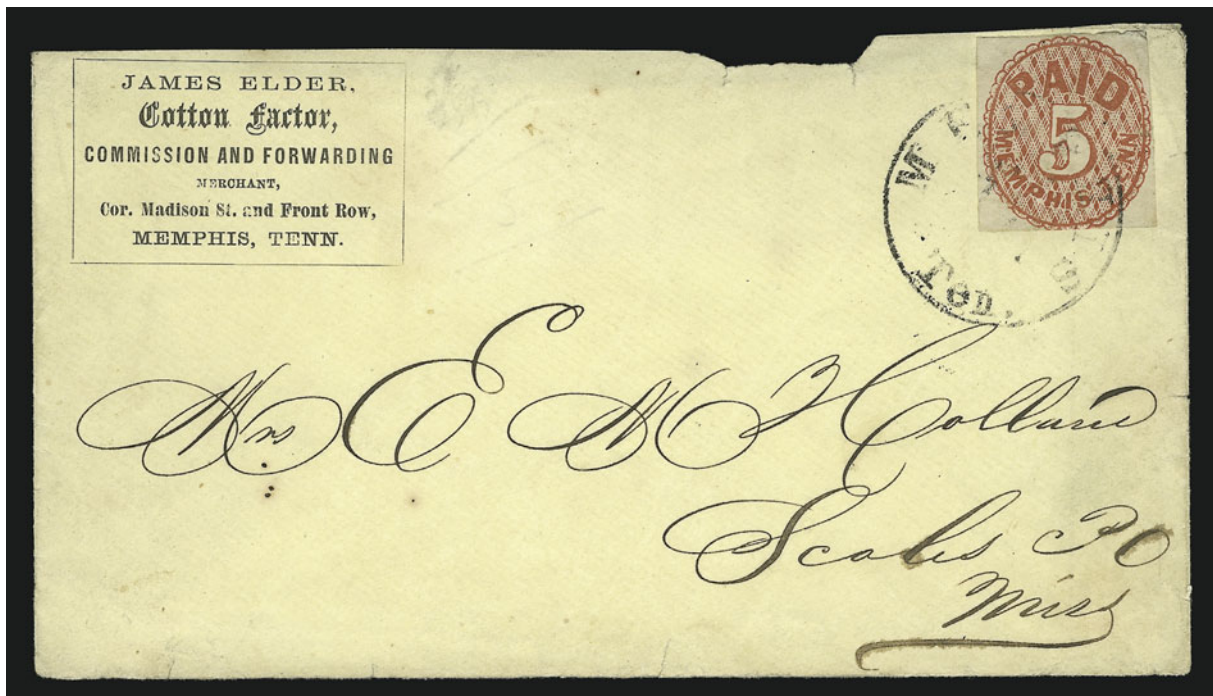 JAMES ELDER,
Cotton Factor,
COMMISSION AND FORWARDING
MERCHANT,
Cor. Madison St. and Front Row,
MEMPHIS, TENN.
PAID
5
MEMPHIS, TENN
MEMPHIS
Ten.
Mrs E M Holland
Scales PO
Miss